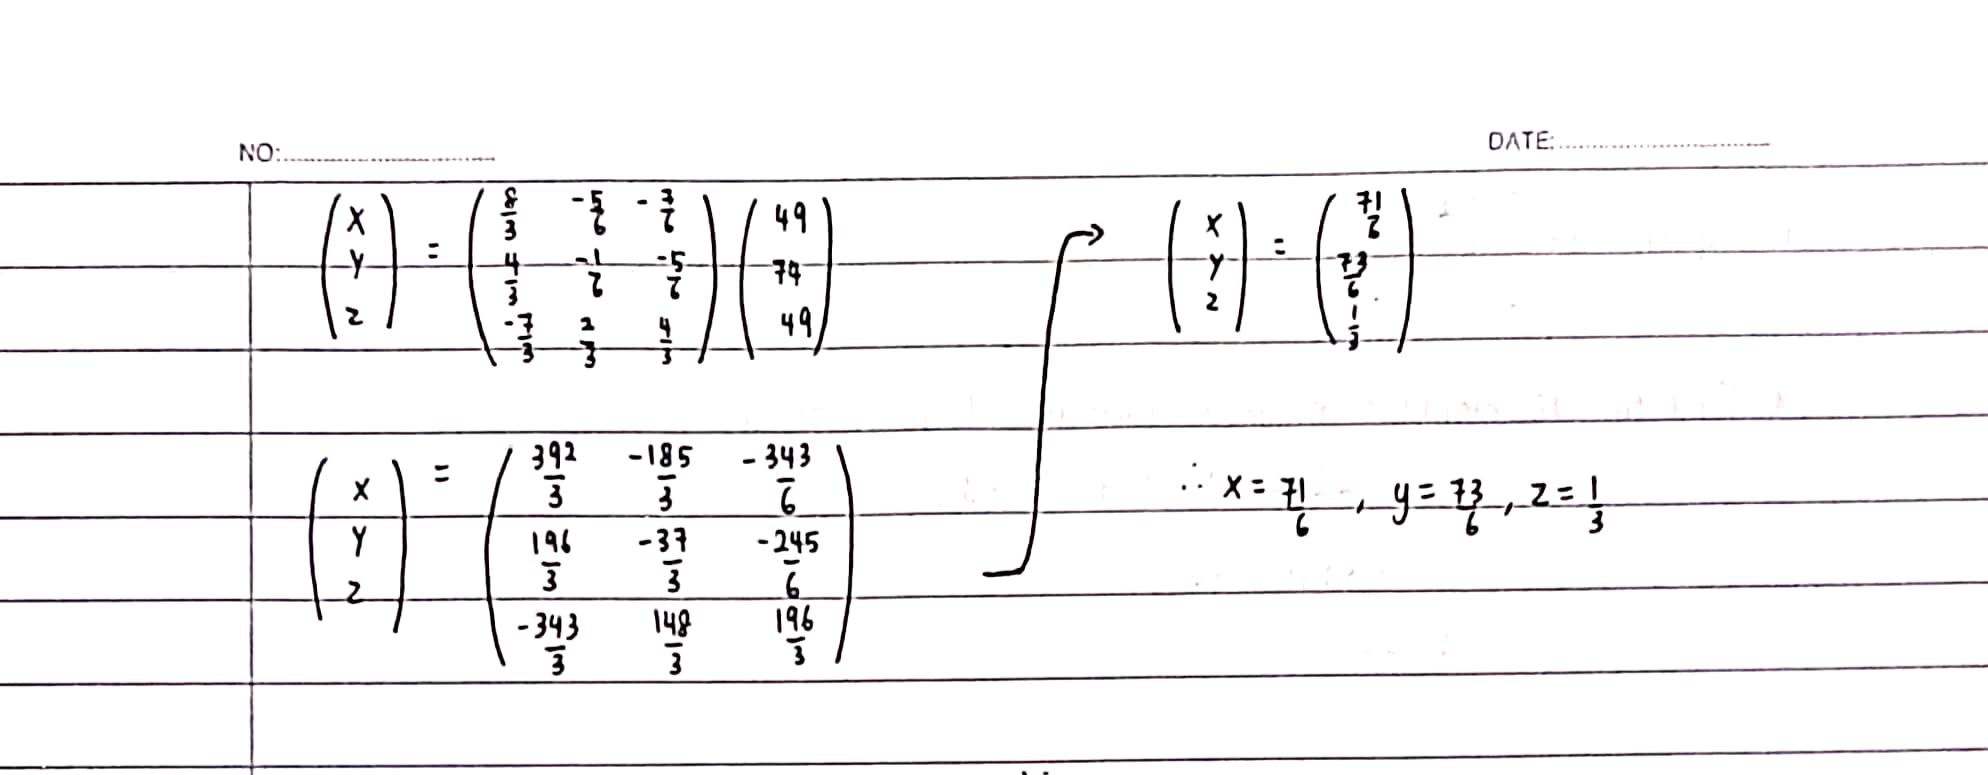 NO:
DATE:
( x y z ) = ( 8/3 -5/6 -7/6 ; 4/3 -1/6 -5/6 ; -7/3 2/3 4/3 ) ( 49 74 49 )
( x y z ) = ( 392/3 -185/3 -343/6 ; 196/3 -37/3 -245/6 ; -343/3 148/3 196/3 )
→ ( x y z ) = ( 71/6 73/6 1/3 )
∴ x = 71/6 , y = 73/6 , z = 1/3